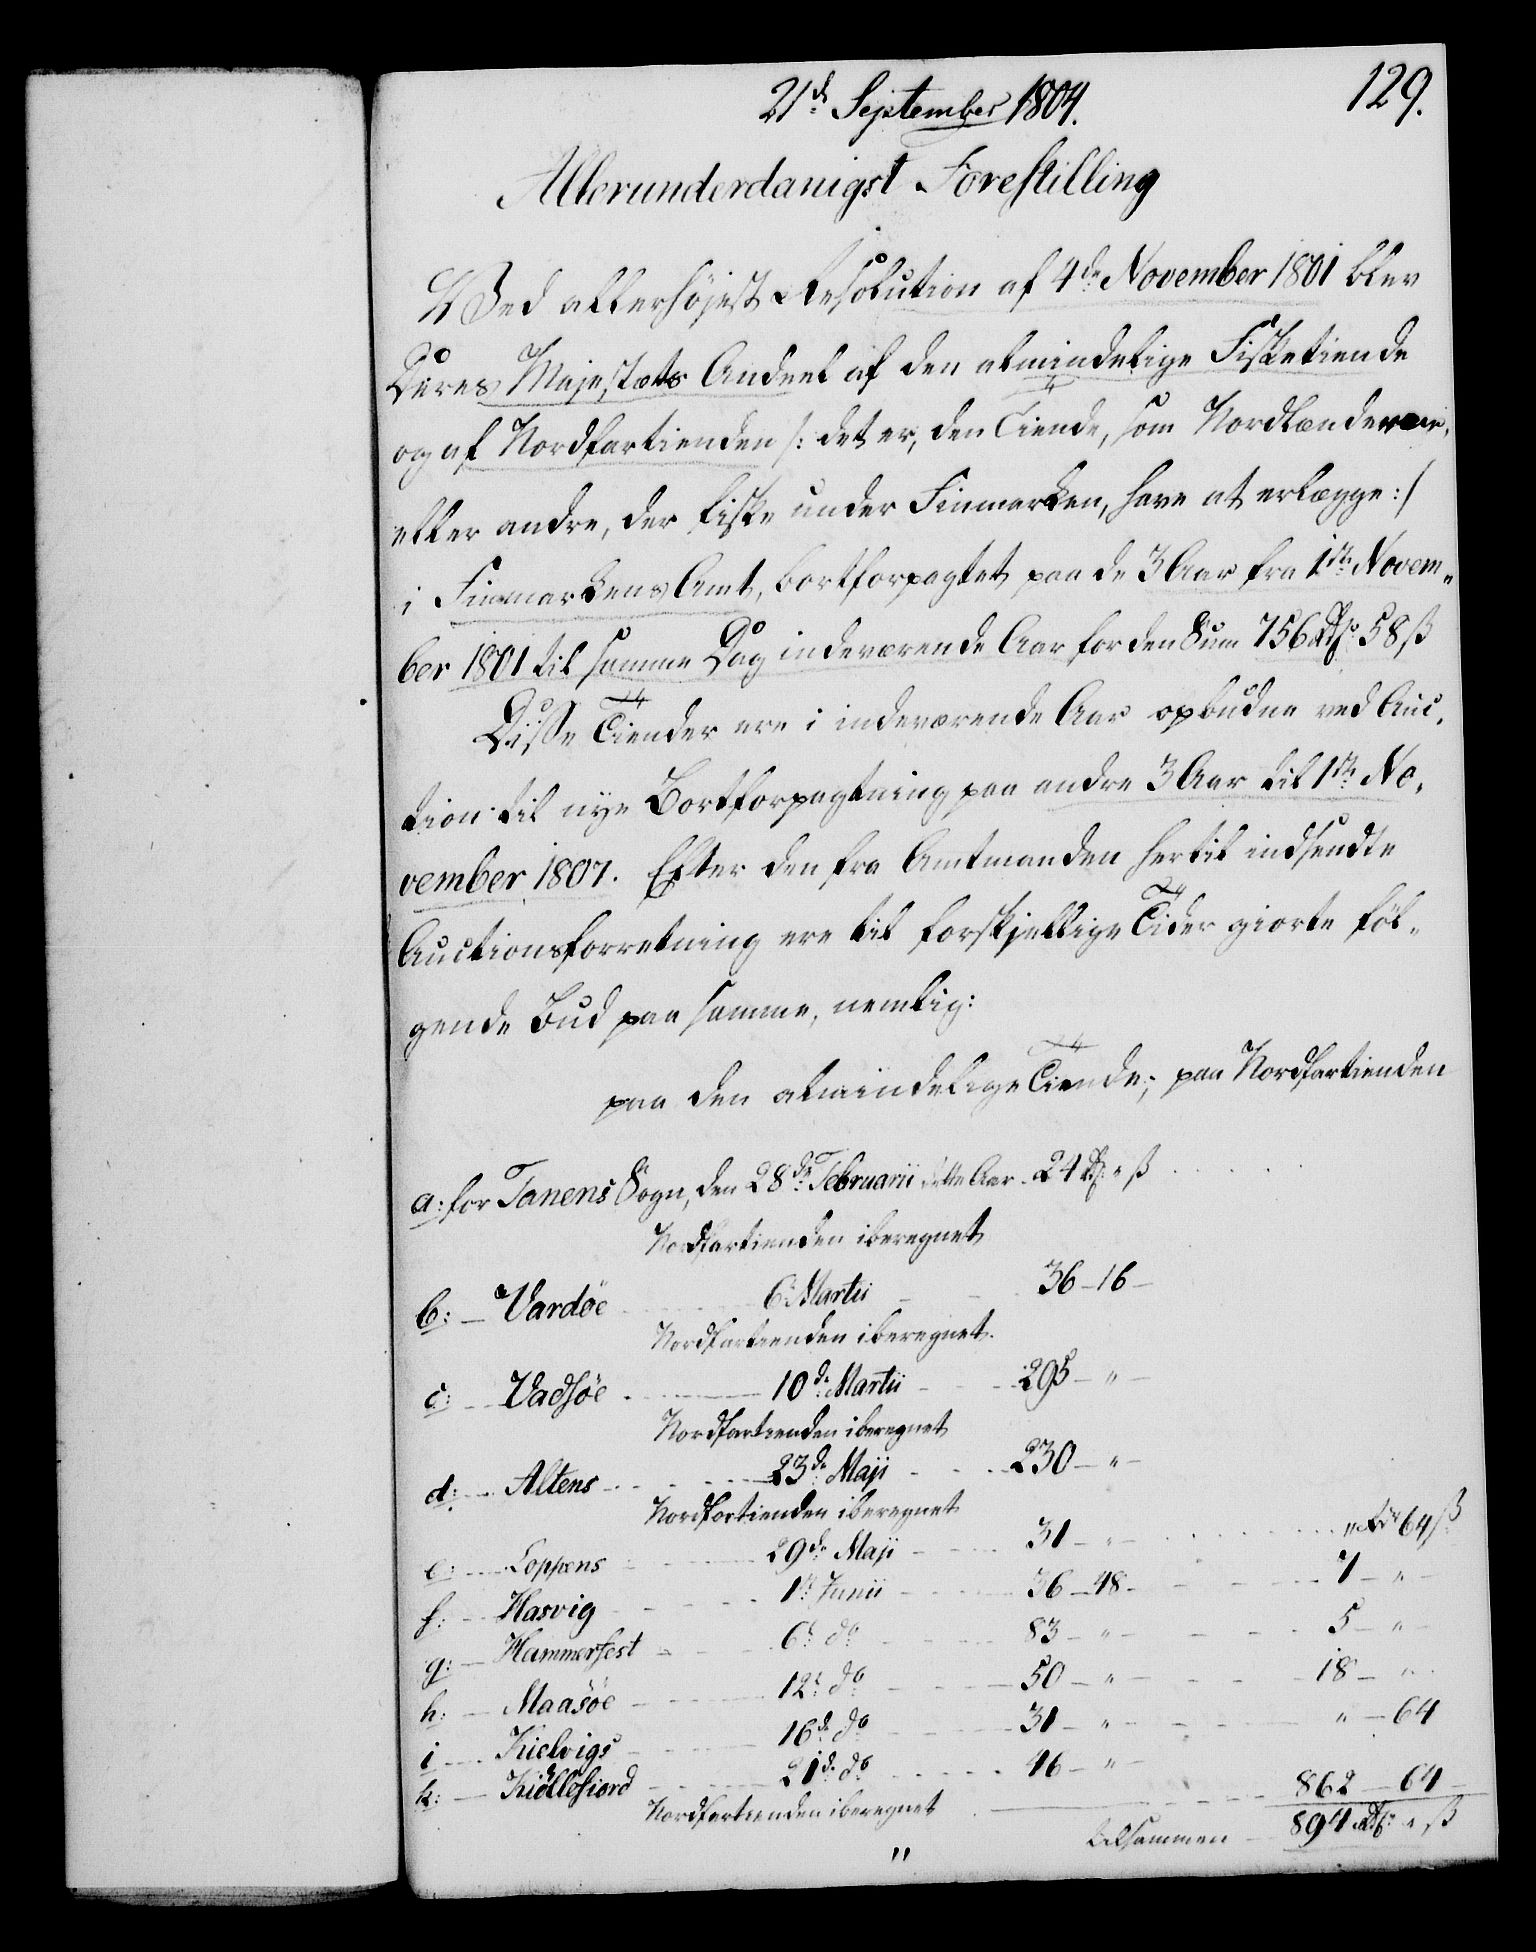 21de September 1804.
129.
Allerunderdanigst Forestilling
Ved allerhøjest Resolution af 4de November 1801 blev
Deres Majestæts Andeel af den almindelige Fisketiende
og af Nordfartienden /: det er, den Tiende, som Nordlænderne,
eller andre, der fiske under Finmarken, have at erlægge :/
i Finmarkens Amt, bortforpagtet paa de 3 Aar fra 1ste Novem-
ber 1801 til samme Dag indeværende Aar for den Sum 756 Rdlr 58 ß
Disse Tiender ere i indeværende Aar opbudne ved Auc-
tion til nye Bortforpagtning paa andre 3 Aar til 1ste No-
vember 1807. Efter den fra Amtmanden hertil indsendte
Auctionsforretning ere til forskjellige Tider giorte føl-
gende Bud paa samme, nemlig:
paa den almindelige Tiende; paa Nordfartienden
a: for Tanens Sogn, den 28de Februarii dette Aar - 24 Rdlr " ß
Nordfartienden iberegnet
b: — Vardøe 6 Martii 36 - 16 -
Nordfartienden iberegnet.
c: — Vadsøe 10de Martii 295 - " -
Nordfartienden iberegnet
d: — Altens 23de Maji 230 - " -
Nordfartienden iberegnet
e: — Loppens 29de Maji 31 - " - " Rdr 64 ß
f: — Hasvig 1ste Junii 36 - 48 - 7 - " -
g: — Hammerfest 6te do 83 - " - 5 - " -
h: — Maasøe 12te do 50 - " - 18 - " -
i — Kielvigs 16de do 31 - " - " - 64
k: — Kiöllefiord 21de do 46 - " -
Nordfartienden iberegnet 862 - 64 -
tilsammen 894 Rdlr " ß
"